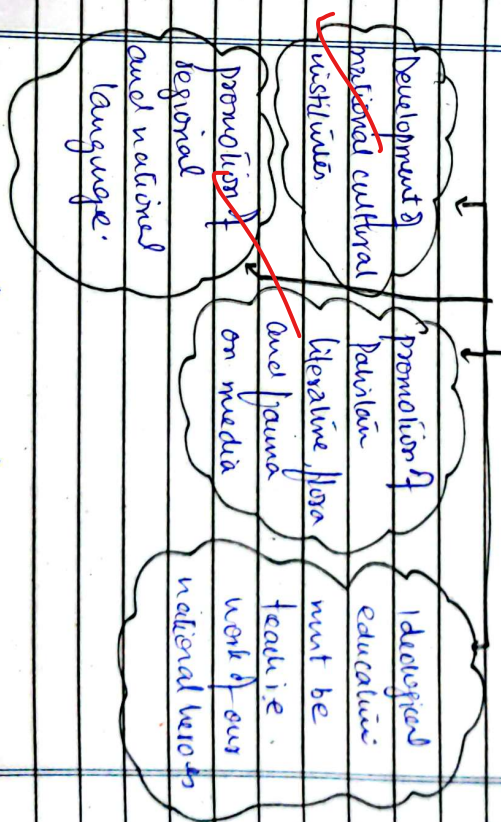 Development of
national cultural
institutes.
promotion of
regional
and national
language.
promotion of
Pakistan
literature, flora
and fauna
on media
Ideological
education
must be
teach i.e.
work of our
national heroes